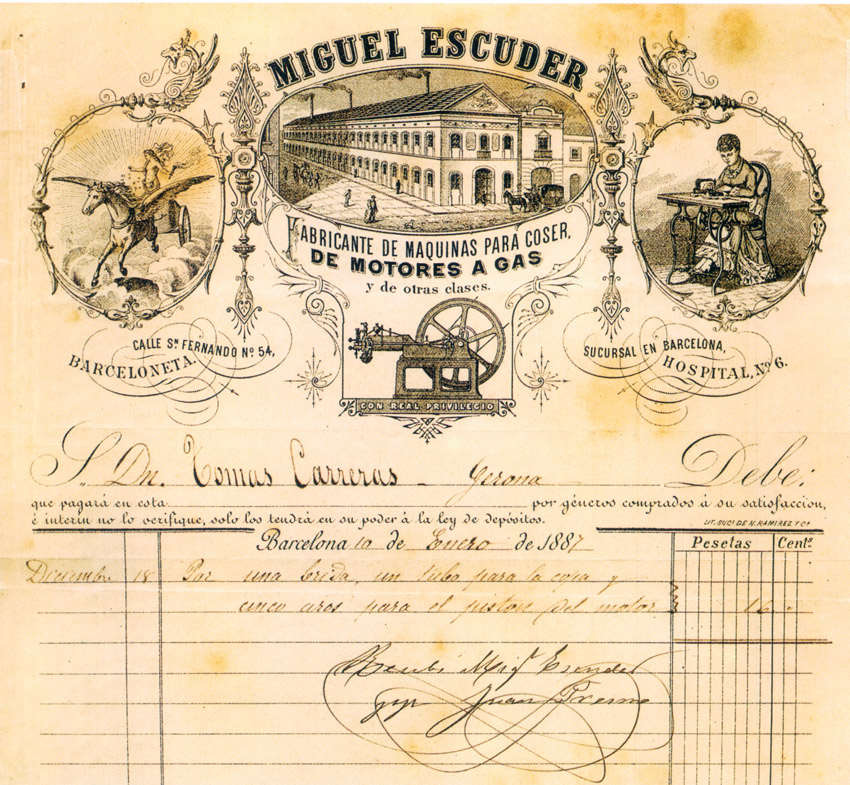 MIGUEL ESCUDER
FABRICANTE DE MAQUINAS PARA COSER,
DE MOTORES A GAS
y de otras clases.
CALLE Sn FERNANDO No 54,
BARCELONETA.
SUCURSAL EN BARCELONA,
HOSPITAL, No 6.
CON REAL PRIVILEGIO
S. Dn. Tomas Carreras - Gerona Debe:
que pagará en esta por géneros comprados á su satisfaccion,
é interin no lo verifique, solo los tendrá en su poder á la ley de depósitos.
LIT. SUCs DE N. RAMIREZ Y Ca
Barcelona 10 de Enero de 1887 Pesetas Cents
Diciembre 18 Por una brida, un tubo para la copa y
cinco aros para el piston del motor 16
Recibi Migl Escuder
pp Juan